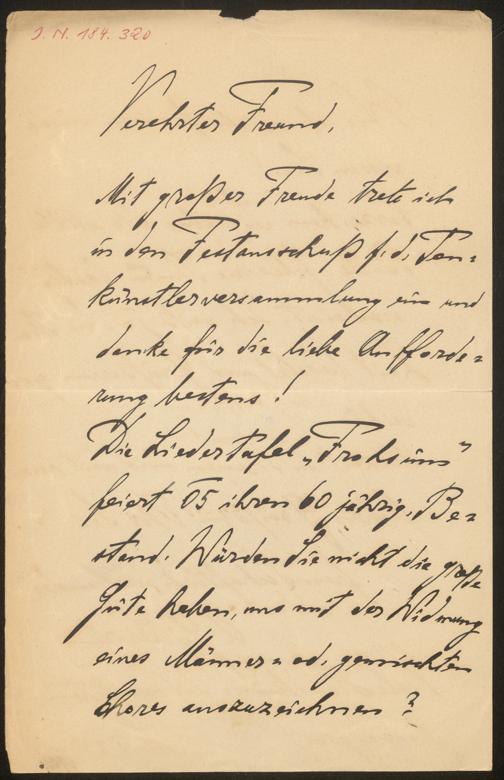 I. N. 184.320
Verehrter Freund,
Mit großer Freude trete ich
in den Festausschuß f. d. Ton=
künstlerversammlung ein und
danke für die liebe Aufforde=
rung bestens!
Die Liedertafel „Frohsinn"
feiert 05 ihren 60 jährig. Be=
stand. Würden Sie nicht die große
Güte haben, uns mit der Widmung
eines Männer= od. gemischten
Chores auszuzeichnen?